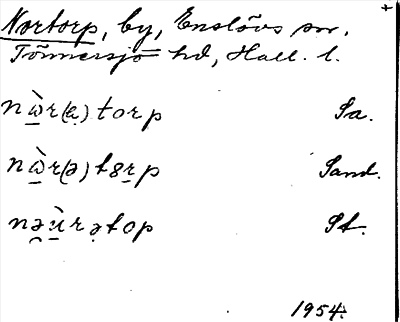 Nortorp, by, Enslövs sn.
Tönnersjö hd, Hall. l.
nὼ̱r(ə̣)torp Sa.
nὼ̱r(ə)t8ṟp Sand.
nə̯ù̱rə̣top St.
1954.